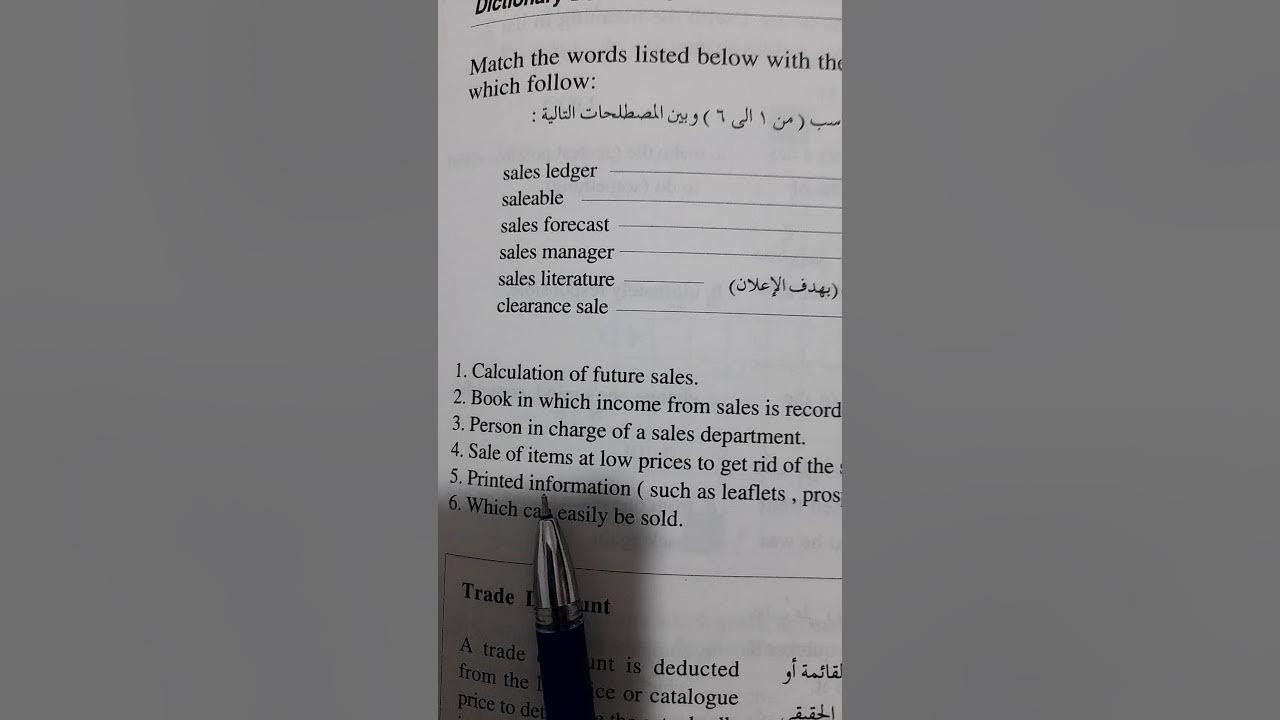 Match the words listed below with the
which follow:
سب ( من ١ الى ٦ ) وبين المصطلحات التالية :
sales ledger
saleable
sales forecast
sales manager
sales literature (بهدف الإعلان)
clearance sale
1. Calculation of future sales.
2. Book in which income from sales is record
3. Person in charge of a sales department.
4. Sale of items at low prices to get rid of the
5. Printed information ( such as leaflets , pros
6. Which can easily be sold.
Trade
A trade is deducted
from the or catalogue
price to
القائمة أو
الحقيقي